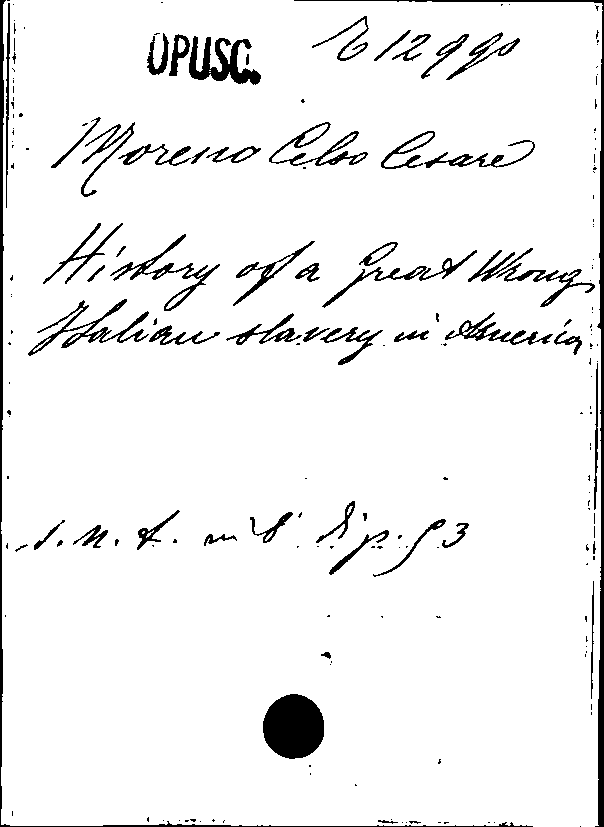 OPUSC. E 12990
Moreno Celso Cesare
History of a Great Wrong
Italian slavery in America
s.n.t. in 8° di p. 53